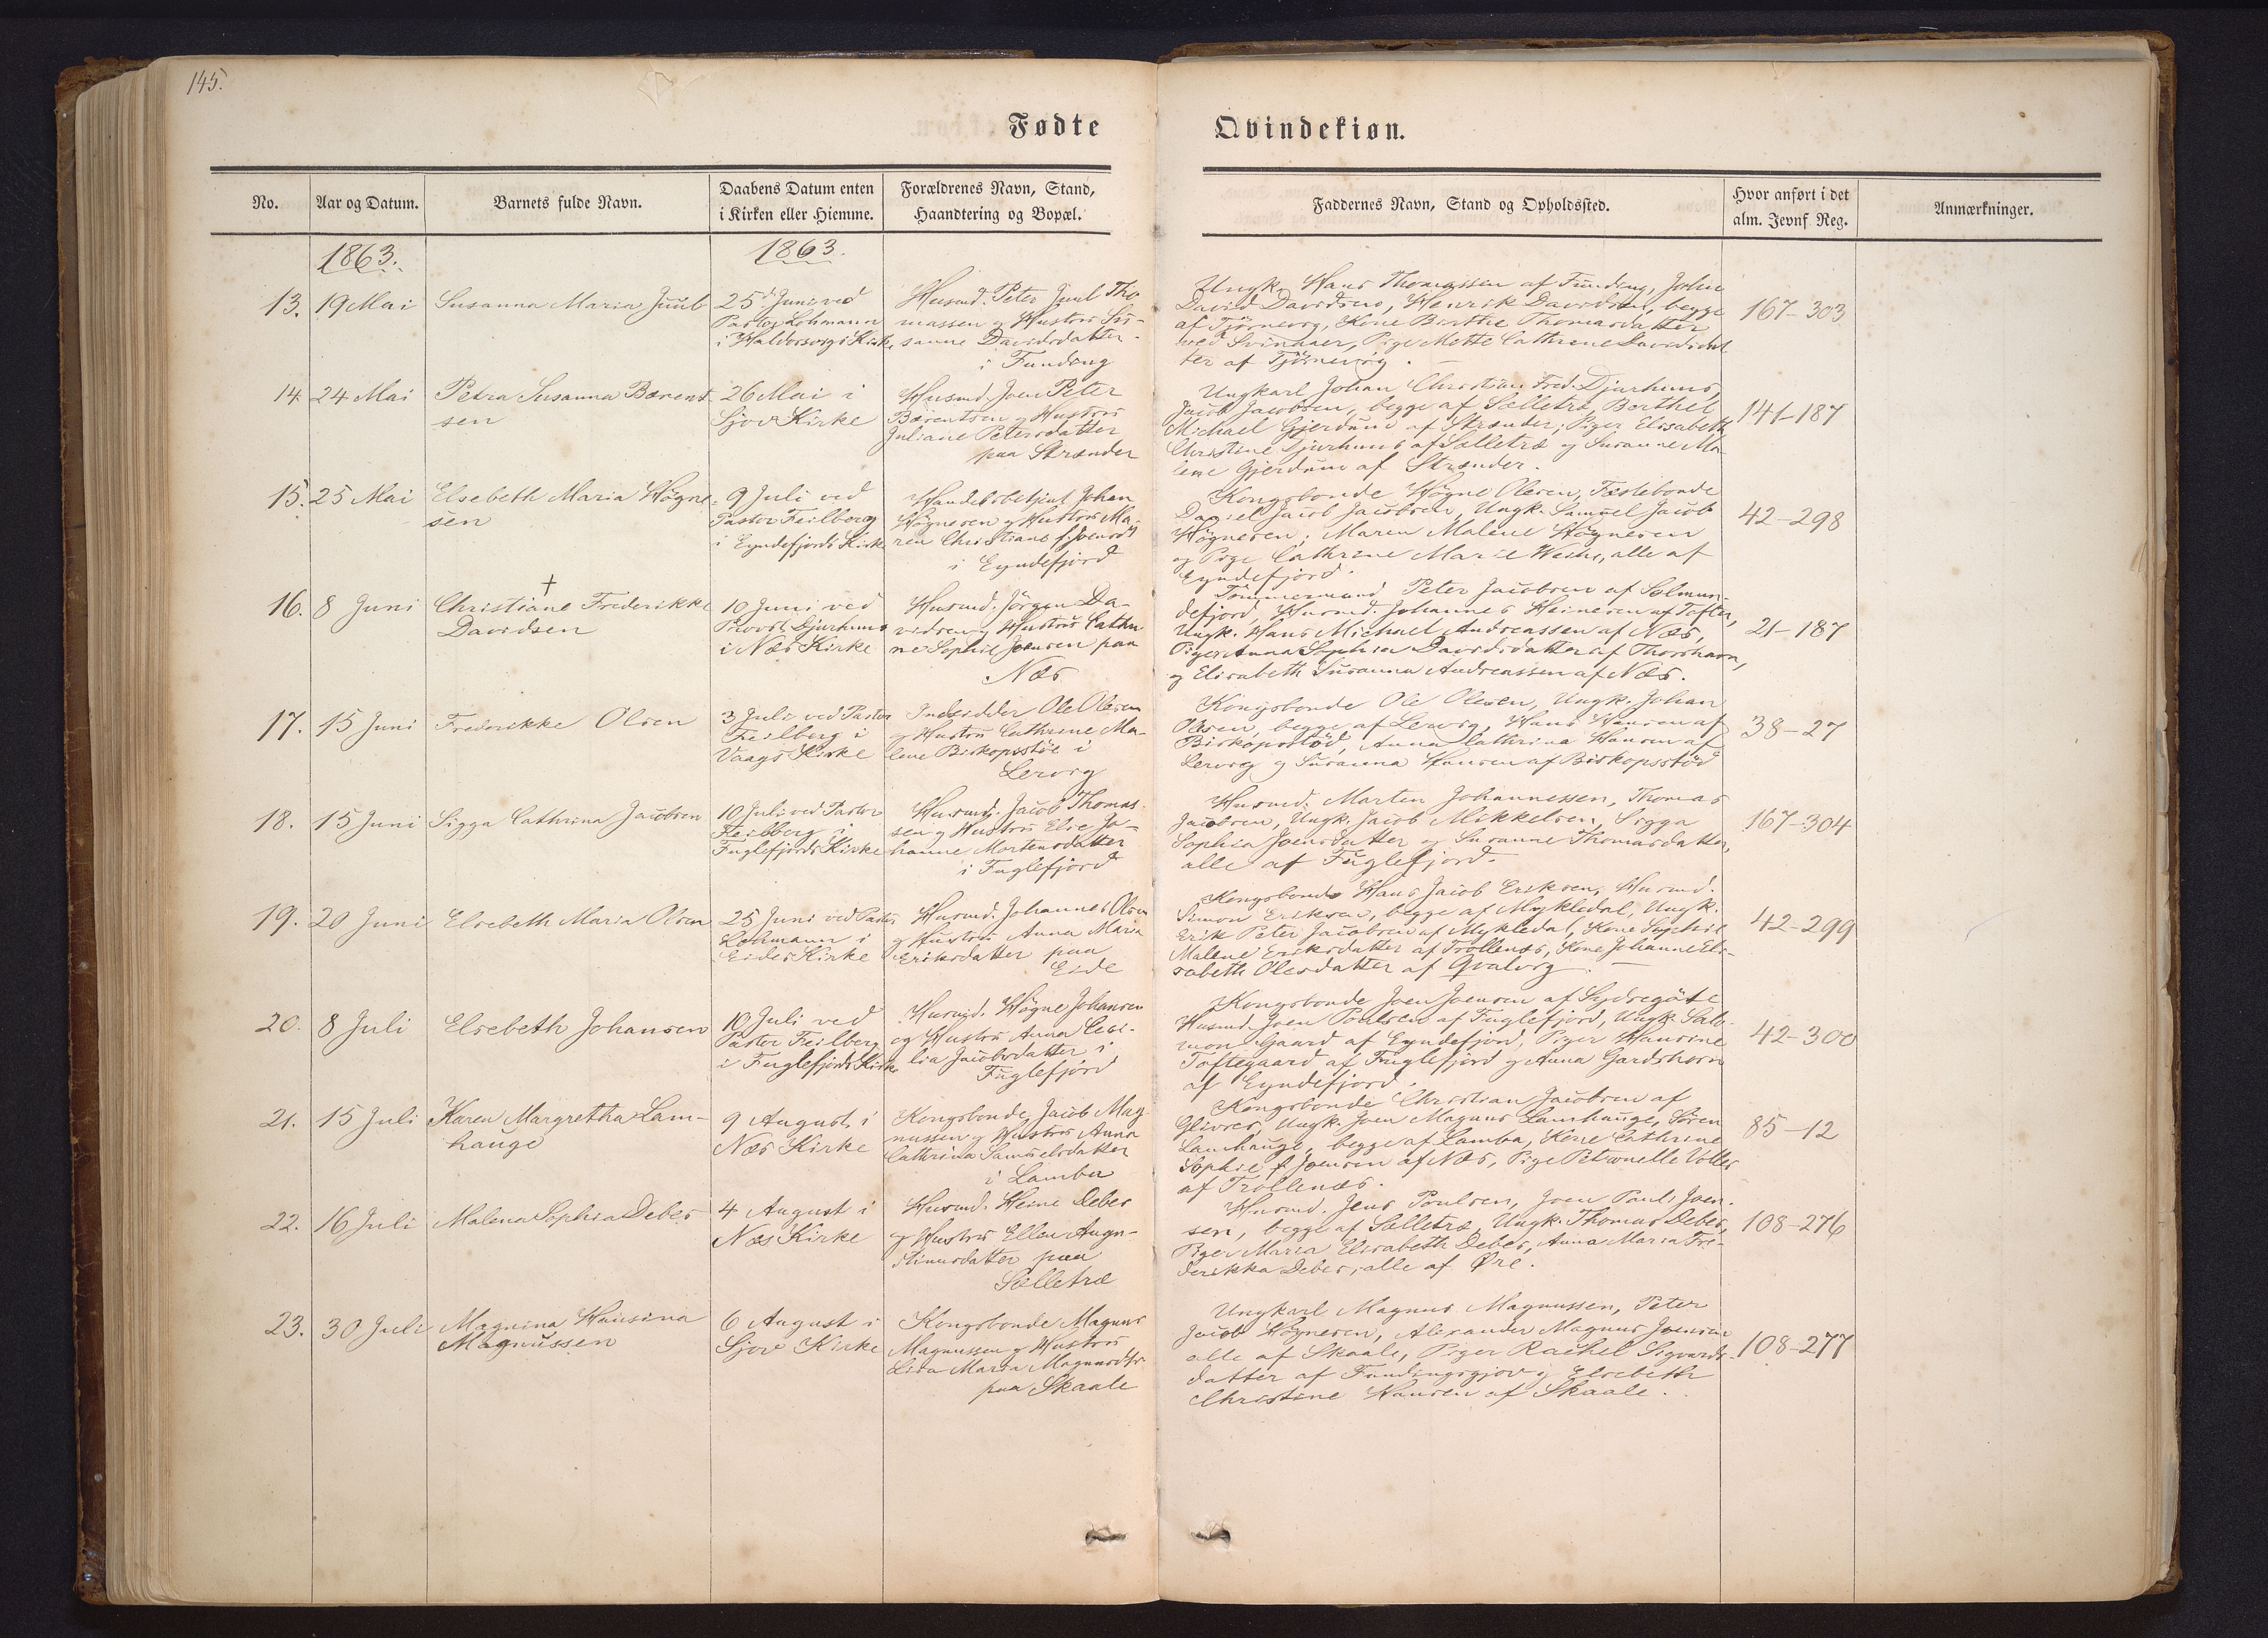 145.
Fødte
Qvindekiøn.
No.
Aar og Datum.
Barnets fulde Navn.
Daabens Datum enten
i Kirken eller Hiemme.
Forældrenes Navn, Stand,
Haandtering og Bopæl.
Faddernes Navn, Stand og Opholdssted.
Hvor anført i det
alm. Jevnf Reg.
Anmærkninger.
1863.
1863.
13.
19 Mai
Susanna Maria Juul
25d Juni ved
Pastor Lohmann
i Haldorsvigs Kirke
Husmd. Peter Juul Tho
massen og Hustru Su-
sanne Davidsdatter
i Funding
Ungk. Hans Thomassen af Funding, John
David Davidsen, Henrik Davidsen, begge
af Tjørnevig, Kone Birthe Thomasdatter
ved Svinaaer, Pige Mette Cathrine Davidsdat
ter af Tjørnevig.
167-303
14
24 Mai
Petra Susanna Bærent
sen
26 Mai i
Sjov Kirke
Husmd. Joen Peter
Bærentsen og Hustru
Juliane Petersdatter
paa Strænder
Ungkarl Johan Christian Fred. Djurhuus,
Jacob Jacobsen, begge af Selletræ, Berthel
Michael Gjerdum af Strænder; Piger Elisabeth
Christine Djurhuus af Selletræ og Susanne Ma
lene Gjerdum af Strænder.
141-187
15.
25 Mai
Elsebeth Maria Høgne-
sen
9 Juli ved
Pastor Feilberg
i Eyndefjords Kirke
Handelsbetjent Johan
Høgnesen og Hustru Ma-
ren Christiane f. Joensdt
i Eyndefjord
Kongsbonde Høgne Olesen, Fæstebonde
Daniel Jacob Jacobsen, Ungk. Samuel Jacob
Høgnesen; Maren Malene Høgnesen
og Pige Cathrine Marie Weihe, alle af
Eyndefjord.
42-298
16.
8 Juni
†
Christiane Frederikke
Davidsen
10 Juni ved
Provst Djurhuus
i Næs Kirke
Husmd. Jørgen Da-
vidsen og Hustru Cathri
ne Sophie Joensen paa
Næs
Tømmermand Peter Jacobsen af Solmun-
defjord, Husmd. Johannes Heinesen af Tofter,
Ungk. Hans Michael Andreassen af Næs,
Piger Anna Sophia Davidsdatter af Thorshavn,
og Elisabeth Susanna Andreassen af Næs.
21-187
17.
15 Juni
Frederikke Olsen
3 Juli ved Pastor
Feilberg i
Vaags Kirke
Indsidder Ole Olesen
og Hustru Cathrine Ma-
lene Biskopsstöd i
Lervig
Kongsbonde Ole Olesen, Ungk. Johan
Olesen, begge af Lervig, Hans Hansen af
Biskopsstöd, Anna Cathrina Hansen af
Lervig og Susanna Hansen af Biskopsstöd
38-27
18.
15 Juni
Sigga Cathrina Jacobsen
10 Juli ved Pastor
Feilberg i
Fuglefjords Kirke
Husmd. Jacob Thomas
sen og Hustru Else Jo-
hanne Mortensdatter
i Fuglefjord
Husmd. Morten Johannessen, Thomas
Jacobsen, Ungk. Jacob Mikkelsen, Sigga
Sophia Joensdatter og Susanne Thomasdatter,
alle af Fuglefjord.
167-304
19.
20 Juni
Elsebeth Maria Olsen
25 Juni ved Pastor
Lohmann i
Eides Kirke
Husmd. Johannes Olsen
og Hustru Anna Maria
Eriksdatter paa
Eide
Kongsbonde Hans Jacob Eriksen, Husmd.
Simon Eriksen, begge af Mykledal, Ungk.
Erik Peter Jacobsen af Mykledal, Kone Sophie
Malene Eriksdatter af Trøllenæs, Kone Johanne Eli-
sabeth Olesdatter af Qvalvig.
42-299
20.
8 Juli
Elsebeth Johansen
10 Juli ved
Pastor Feilberg
i Fuglefjords Kirke
Husmd. Høgne Johansen
og Hustru Anna Ceci-
lia Jacobsdatter i
Fuglefjord
Kongsbonde Joen Joensen af Sydregöte
Husmd. Joen Poulsen af Fuglefjord, Ungk. Salo-
mon Gaard af Eyndefjord, Piger Hansine
Toftegaard af Fuglefjord og Anna Gardshorn
af Eyndefjord.
42-300
21.
15 Juli
Karen Margretha Lam-
hauge
9 August i
Næs Kirke
Kongsbonde Jacob Mag
nussen og Hustru Anna
Cathrina Samuelsdatter
i Lamba
Kongsbonde Christian Jacobsen af
Glivrer, Ungk. Joen Magnus Lamhauge, Søren
Lamhauge, begge af Lamba, Kone Cathrine
Sophie f Joensen af Næs, Pige Petronelle Volles
af Trøllenæs.
85-12
22.
16 Juli
Malena Sophia Debes
4 August i
Næs Kirke
Husmd. Heine Debes
og Hustru Ellen Augu-
stinusdatter paa
Selletræ
Husmd. Jens Poulsen, Joen Pauli Joen-
sen, begge af Selletræ, Ungk. Thomas Debes,
Piger Maria Elisabeth Debes, Anna Maria Fre-
derikka Debes, alle af Øre.
108-276
23.
30 Juli
Magnina Hansina
Magnussen
6 August i
Sjov Kirke
Kongsbonde Magnus
Magnussen og Hustru
Lisa Maria Magnusdtr.
paa Skaale
Ungkarl Magnus Magnussen, Peter
Jacob Høgnesen, Alexander Magnus Joensen
alle af Skaale, Piger Rachel Sigvards-
datter af Fundingsgjov og Elsebeth
Christine Hansen af Skaale.
108-277